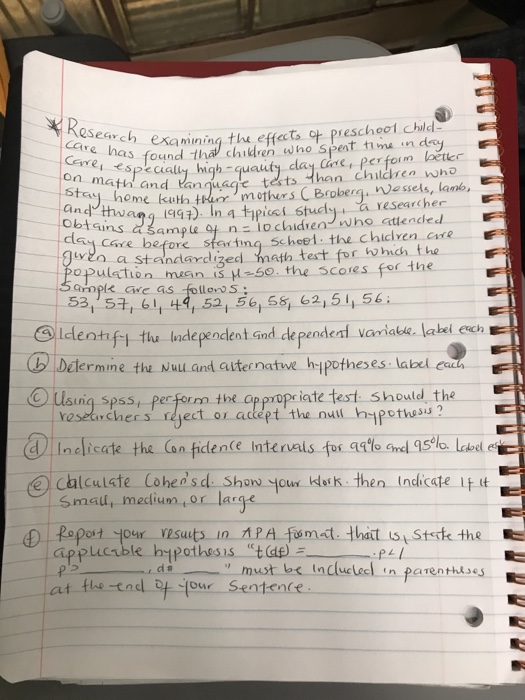 *Research examining the effects of preschool child-
care has found that children who spent time in day
care, especially high-quality day care, perform better
on math and language tests than children who
stay home with their mothers (Broberg, Wessels, lamb,
and thwang 1997). In a typical study, a researcher
obtains a sample of n=10 children who attended
day care before starting school. the children are
given a standardized math test for which the
population mean is μ=50. the scores for the
sample are as follows:
53, 57, 61, 49, 52, 56, 58, 62, 51, 56;
(a) Identify the Independent and dependent variable. label each
(b) Determine the Null and alternative hypotheses. label each
(c) Using spss, perform the appropriate test. Should the
researchers reject or accept the null hypothesis?
(d) Indicate the Confidence Intervals for 99% and 95%. Label
(e) Calculate Cohen's d. Show your Work. then Indicate If it
Small, medium, or large
(f) Report your results in APA format. that is, State the
applicable hypothesis "t(df) = ____ .p< /
p> ____, d= ____" must be Included in parentheses
at the end of your Sentence.